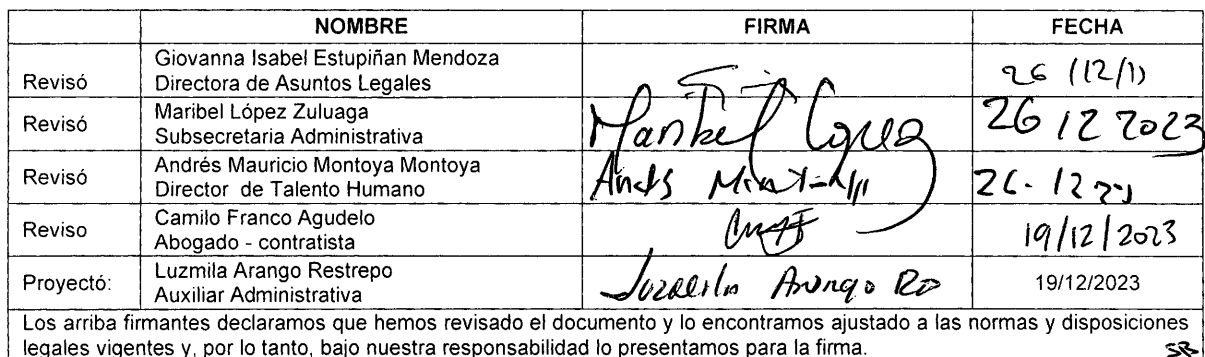 NOMBRE FIRMA FECHA
Revisó Giovanna Isabel Estupiñan Mendoza
Directora de Asuntos Legales
Revisó Maribel López Zuluaga 26 12 2023
Subsecretaria Administrativa Maribel López
Revisó Andrés Mauricio Montoya Montoya
Director de Talento Humano Andrés
Reviso Camilo Franco Agudelo 19/12/2023
Abogado - contratista
Proyectó: Luzmila Arango Restrepo Luzmila Arango 19/12/2023
Auxiliar Administrativa
Los arriba firmantes declaramos que hemos revisado el documento y lo encontramos ajustado a las normas y disposiciones
legales vigentes y, por lo tanto, bajo nuestra responsabilidad lo presentamos para la firma.